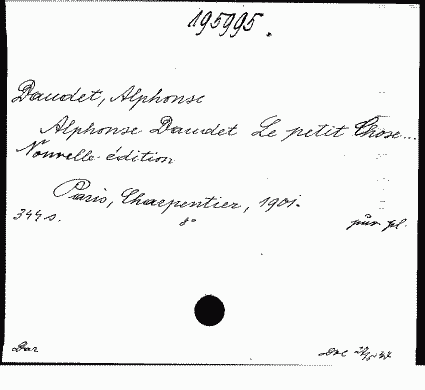 195995.
Daudet, Alphonse
Alphonse Daudet Le petit Chose...
Nouvelle édition
Paris, Charpentier, 1901.
344 s. 8° pův. pl.
Dar